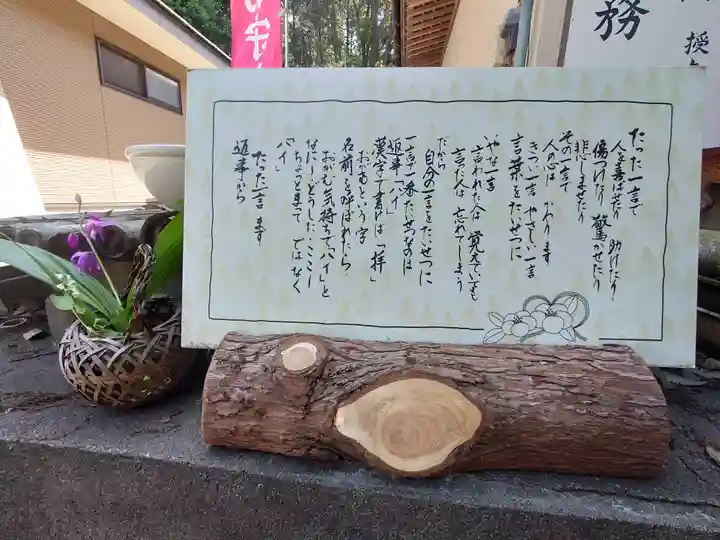 たった一言で
人を喜ばせたり 助けたり
傷つけたり 驚かせたり
悲しませたり
その一言で
人の心は かわります
きつい一言 やさしい一言
言葉をたいせつに
いやな一言
言われた人は 覚えていても
言った人は 忘れてしまう
だから
自分の一言をたいせつに
一言で一番たいせつなのは
返事「ハイ」
漢字で書けば「拝」
おがむという字
名前を呼ばれたら
おがむ気持ちで「ハイ」と
なに〜、どうした、ここ〜
ちょっと まって ではなく
「ハイ」
たった一言 まず
返事から
お守
務
授